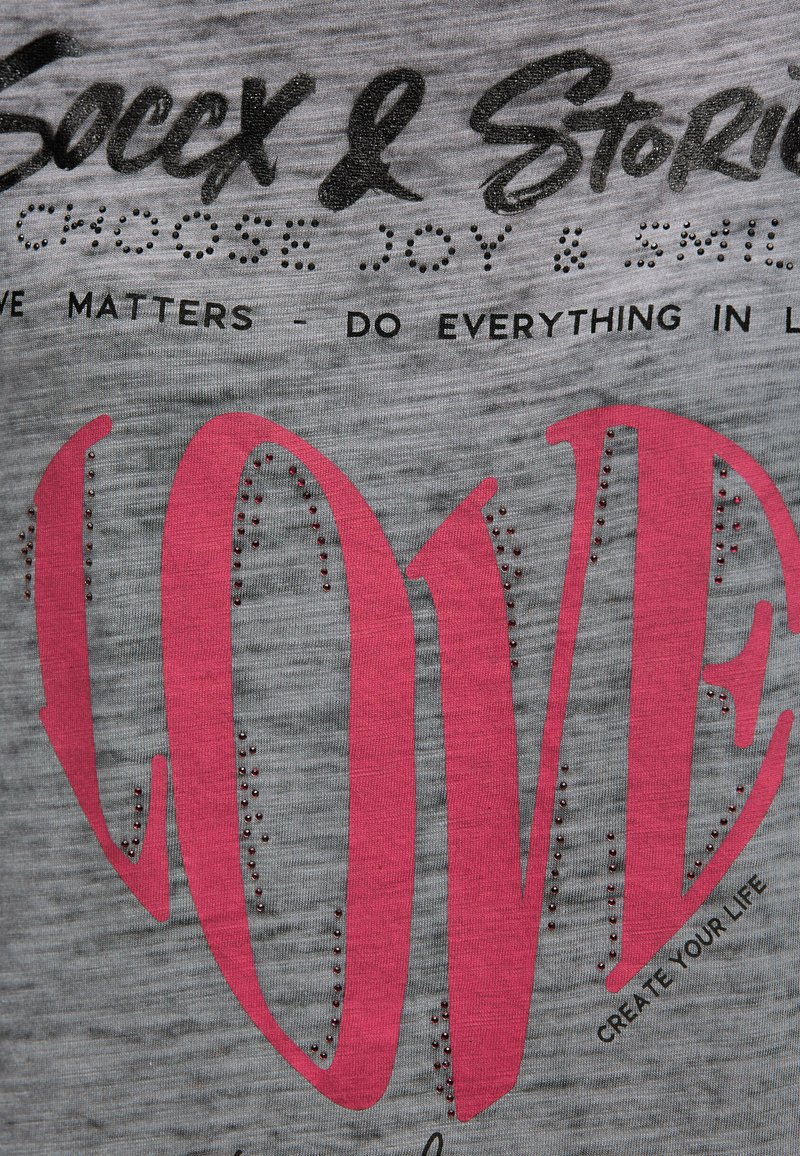 Soccx & Stori
CHOOSE JOY & SMIL
VE MATTERS - DO EVERYTHING IN L
LOVE
CREATE YOUR LIFE